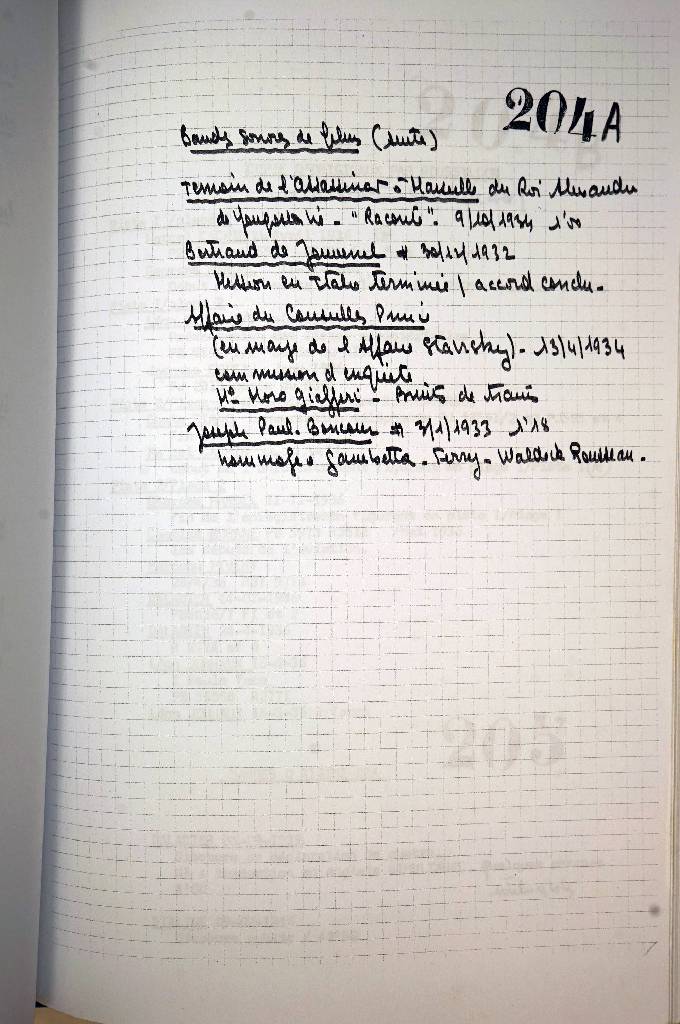 204A
Bandes sonores de films (suite)
Temoin de l'Assassinat à Marseille du Roi Alexandre
de Yougoslavie - "Raconte". 9/10/1934 1'00
Bertrand de Jouvenel # 30/12/1932
Mission en Italie terminée / accord conclu.
Affaire du Conseiller Prince
(en marge de l'Affaire Stavisky). 13/4/1934
commission d'enquête
Me Moro Giafferi - Bruits de train
Joseph Paul-Boncour # 3/1/1933 1'18
hommage à Gambetta - Ferry - Waldeck Rousseau.